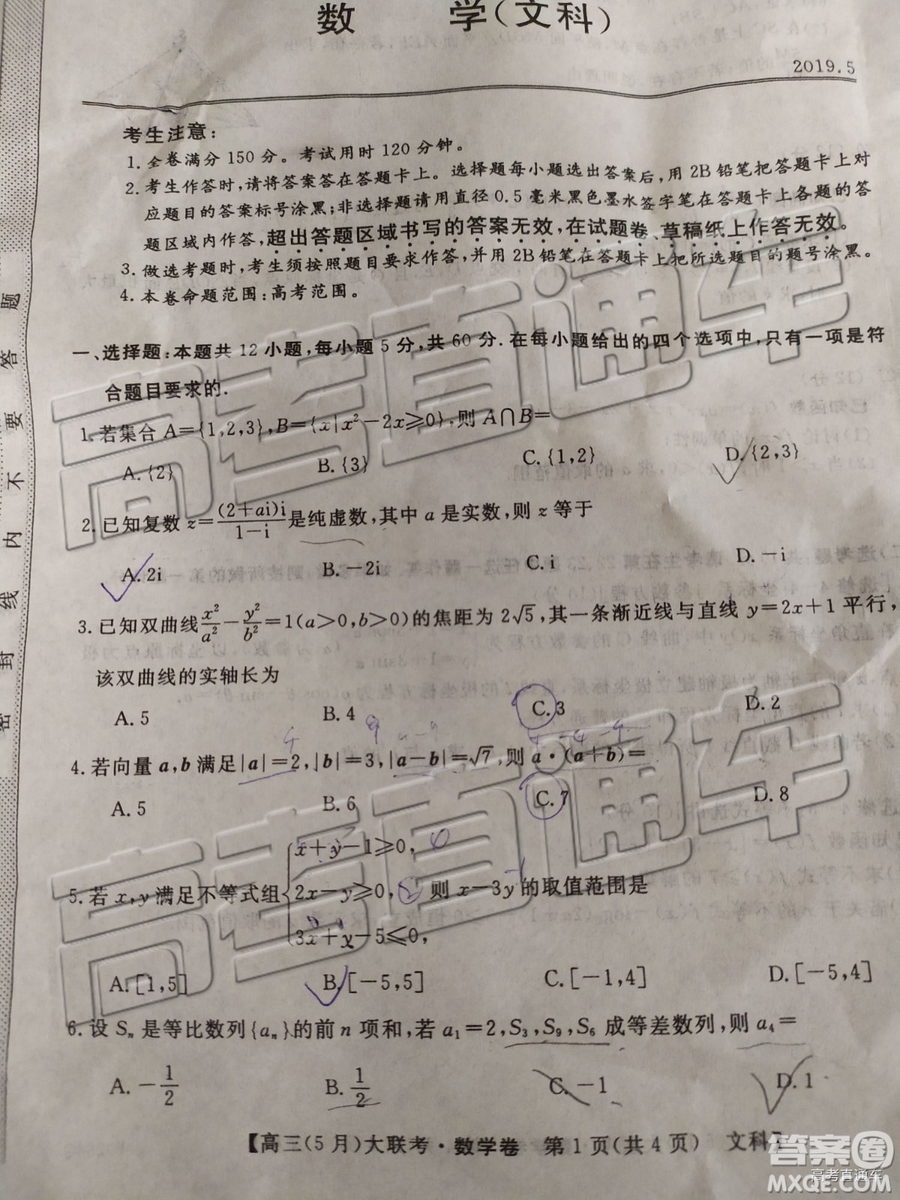 数 学(文科)
2019.5
考生注意:
1. 全卷满分 150 分。考试用时 120 分钟。
2. 考生作答时,请将答案答在答题卡上。选择题每小题选出答案后,用 2B 铅笔把答题卡上对
应题目的答案标号涂黑;非选择题请用直径 0.5 毫米黑色墨水签字笔在答题卡上各题的答
题区域内作答,超出答题区域书写的答案无效,在试题卷、草稿纸上作答无效。
3. 做选考题时,考生须按照题目要求作答,并用 2B 铅笔在答题卡上把所选题目的题号涂黑。
4. 本卷命题范围:高考范围。
一、选择题:本题共 12 小题,每小题 5 分,共 60 分.在每小题给出的四个选项中,只有一项是符
合题目要求的.
1. 若集合 A={1,2,3},B={x|x²-2x≥0},则 A∩B=
A. {2} B. {3} C. {1,2} D. {2,3}
2. 已知复数 z=(2+ai)i/1-i 是纯虚数,其中 a 是实数,则 z 等于
A. 2i B. -2i C. i D. -i
3. 已知双曲线 x²/a²-y²/b²=1(a>0,b>0)的焦距为 2√5,其一条渐近线与直线 y=2x+1 平行,
该双曲线的实轴长为
A. 5 B. 4 C. 3 D. 2
4. 若向量 a,b 满足|a|=2,|b|=3,|a-b|=√7,则 a·(a+b)=
A. 5 B. 6 C. 7 D. 8
x+y-1≥0,
5. 若 x,y 满足不等式组{2x-y≥0, 则 x-3y 的取值范围是
3x+y-5≤0,
A. [1,5] B. [-5,5] C. [-1,4] D. [-5,4]
6. 设 Sₙ 是等比数列{aₙ}的前 n 项和,若 a₁=2,S₃,S₉,S₆ 成等差数列,则 a₄=
A. -1/2 B. 1/2 C. -1 D. 1
【高三(5 月)大联考·数学卷 第 1 页(共 4 页) 文科】
密 封 线 内 不 要 答 题
高考直通车
高考直通车
答案圈
MXQE.COM
高考直通车